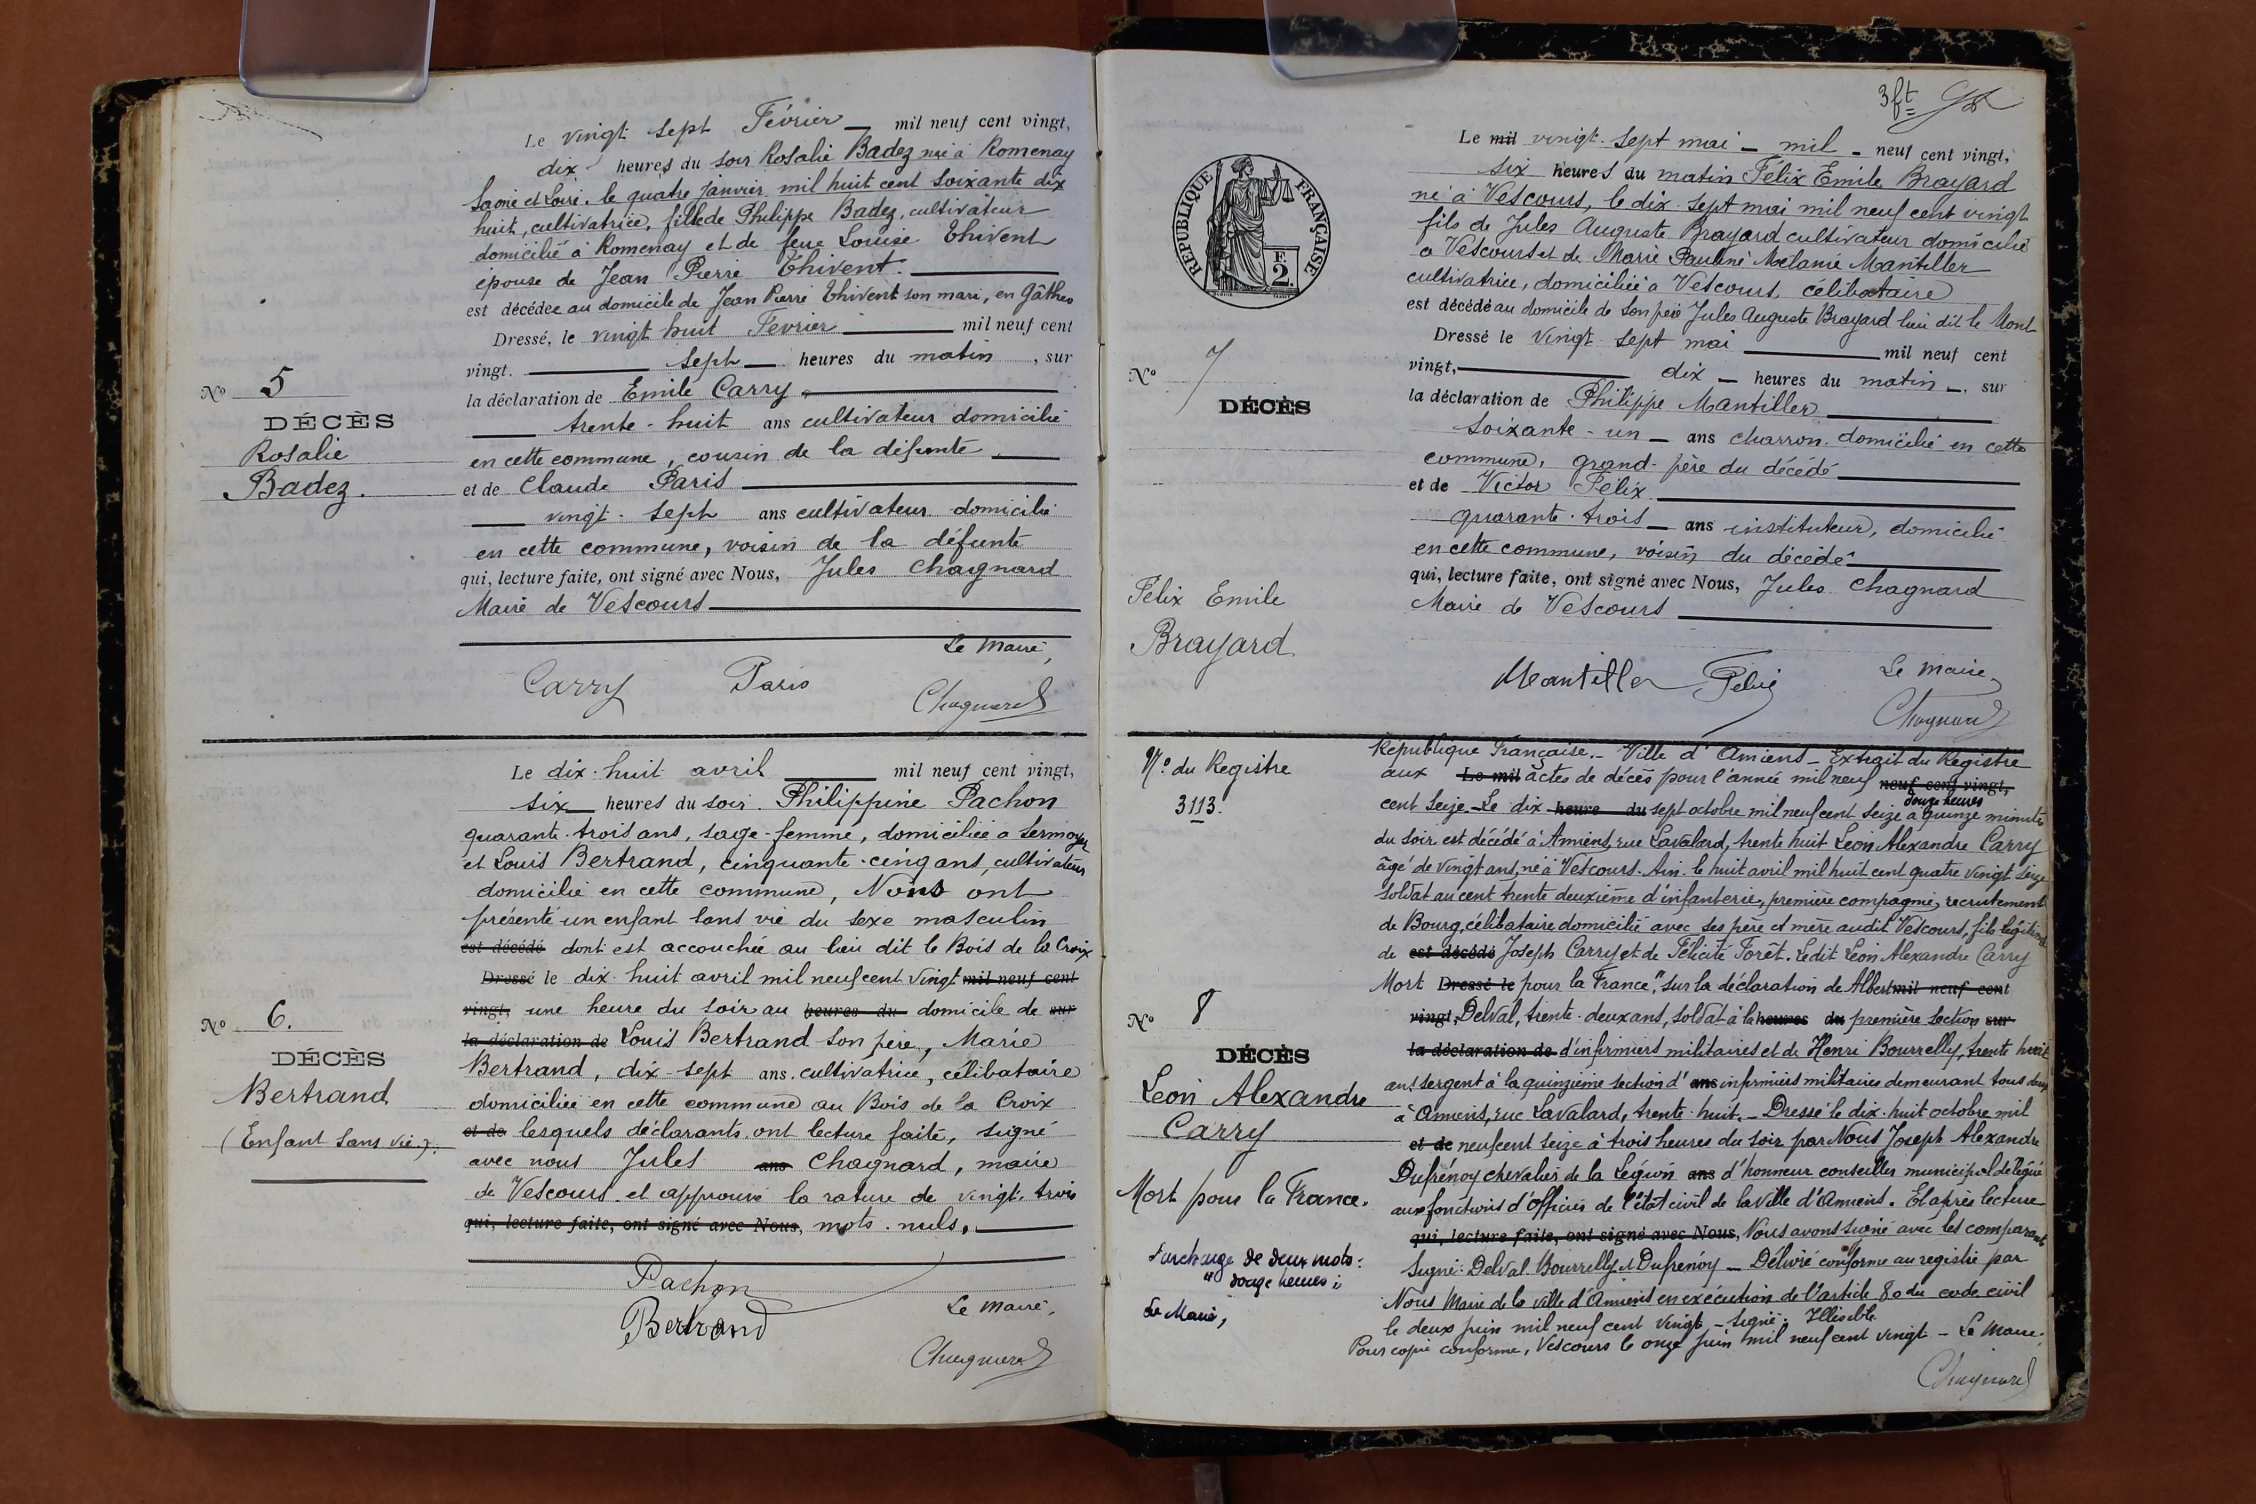 Le vingt sept Février mil neuf cent vingt,
dix heures du soir Rosalie Badez née à Romenay
Saône et Loire, le quatre janvier mil huit cent soixante dix
huit, cultivatrice, fille de Philippe Badez, cultivateur
domicilié à Romenay et de feue Louise Thivent
épouse de Jean Pierre Thivent.
est décédée au domicile de Jean Pierre Thivent son mari, en Gâthes
Dressé, le vingt huit Février mil neuf cent
vingt. sept heures du matin, sur
la déclaration de Emile Carry
trente-huit ans cultivateur domicilié
en cette commune, cousin de la défunte
et de Claude Paris
vingt-sept ans cultivateur domicilié
en cette commune, voisin de la défunte
qui, lecture faite, ont signé avec Nous, Jules Chagnard
Maire de Vescours
Le Maire,
Carry Paris Chagnard
No 5
DÉCÈS
Rosalie
Badez.
Le dix-huit avril mil neuf cent vingt,
six heures du soir. Philippine Pachon
quarante-trois ans, sage-femme, domiciliée à Sermoyer
et Louis Bertrand, cinquante-cinq ans, cultivateur
domicilié en cette commune, Nous ont
présenté un enfant sans vie du sexe masculin
est décédé dont est accouchée au lieu dit le Bois de la Croix
Dressé le dix-huit avril mil neuf cent vingt mil neuf cent
vingt, une heure du soir au heures du domicile de sur
la déclaration de Louis Bertrand son père, Marie
Bertrand, dix-sept ans. cultivatrice, célibataire
domiciliée en cette commune au Bois de la Croix
et de lesquels déclarants ont lecture faite, signé
avec nous Jules ans Chagnard, maire
de Vescours et approuvé la rature de vingt-trois
qui, lecture faite, ont signé avec Nous, mots nuls.
Pachon
Bertrand
Le Maire,
Chagnard
No 6.
DÉCÈS
Bertrand
(Enfant sans vie).
3 ft
RÉPUBLIQUE FRANÇAISE
E
2
Le mil vingt-sept mai mil neuf cent vingt,
six heures du matin Félix Emile Brayard
né à Vescours, le dix-sept mai mil neuf cent vingt
fils de Jules Auguste Brayard cultivateur domicilié
à Vescours et de Marie Pauline Mélanie Mantiller
cultivatrice, domiciliée à Vescours, célibataire
est décédé au domicile de son père Jules Auguste Brayard lieu dit le Mont
Dressé le vingt sept mai mil neuf cent
vingt, dix heures du matin, sur
la déclaration de Philippe Mantiller
soixante-un ans charron domicilié en cette
commune, grand-père du décédé
et de Victor Félix
quarante-trois ans instituteur, domicilié
en cette commune, voisin du décédé
qui, lecture faite, ont signé avec Nous, Jules Chagnard
Maire de Vescours
Mantiller Félix
Le Maire
Chagnard
No 7
DÉCÈS
Félix Emile
Brayard
République Française. - Ville d'Amiens - Extrait du Registre
aux Le mil actes de décès pour l'année mil neuf neuf cent vingt,
cent seize. Le dix heure du sept octobre mil neuf cent seize à douze heures quinze minutes
du soir est décédé à Amiens, rue Lavalard, trente huit Léon Alexandre Carry
âgé de vingt ans, né à Vescours. Ain. le huit avril mil huit cent quatre vingt seize
soldat au cent trente deuxième d'infanterie, première compagnie, recrutement
de Bourg, célibataire domicilié avec ses père et mère audit Vescours, fils légitime
de est décédé Joseph Carry et de Félicité Forêt. Ledit Léon Alexandre Carry
Mort Dressé le pour la France", sur la déclaration de Albert mil neuf cent
vingt, Delval, trente-deux ans, soldat à la heures du première section sur
la déclaration de d'infirmiers militaires et de Henri Bourrelly, trente huit
ans, sergent à la quinzième section d' ans infirmiers militaires demeurant tous deux
à Amiens, rue Lavalard, trente-huit. - Dressé le dix-huit octobre mil
et de neuf cent seize à trois heures du soir par Nous Joseph Alexandre
Dufrénoy chevalier de la Légion ans d'honneur conseiller municipal délégué
aux fonctions d'officier de l'état civil de la Ville d'Amiens. Et après lecture
qui, lecture faite, ont signé avec Nous, Nous avons signé avec les comparants
Signé: Delval. Bourrelly et Dufrénoy - Délivré conforme au registre par
Nous Maire de la ville d'Amiens en exécution de l'article 80 du code civil
le deux juin mil neuf cent vingt - Signé: Illisible
Pour copie conforme, Vescours le onze juin mil neuf cent vingt - Le Maire.
Chagnard
No du Registre
3113.
No 8
DÉCÈS
Léon Alexandre
Carry
Mort pour la France.
Surcharge de deux mots:
"douze heures":
Le Maire,